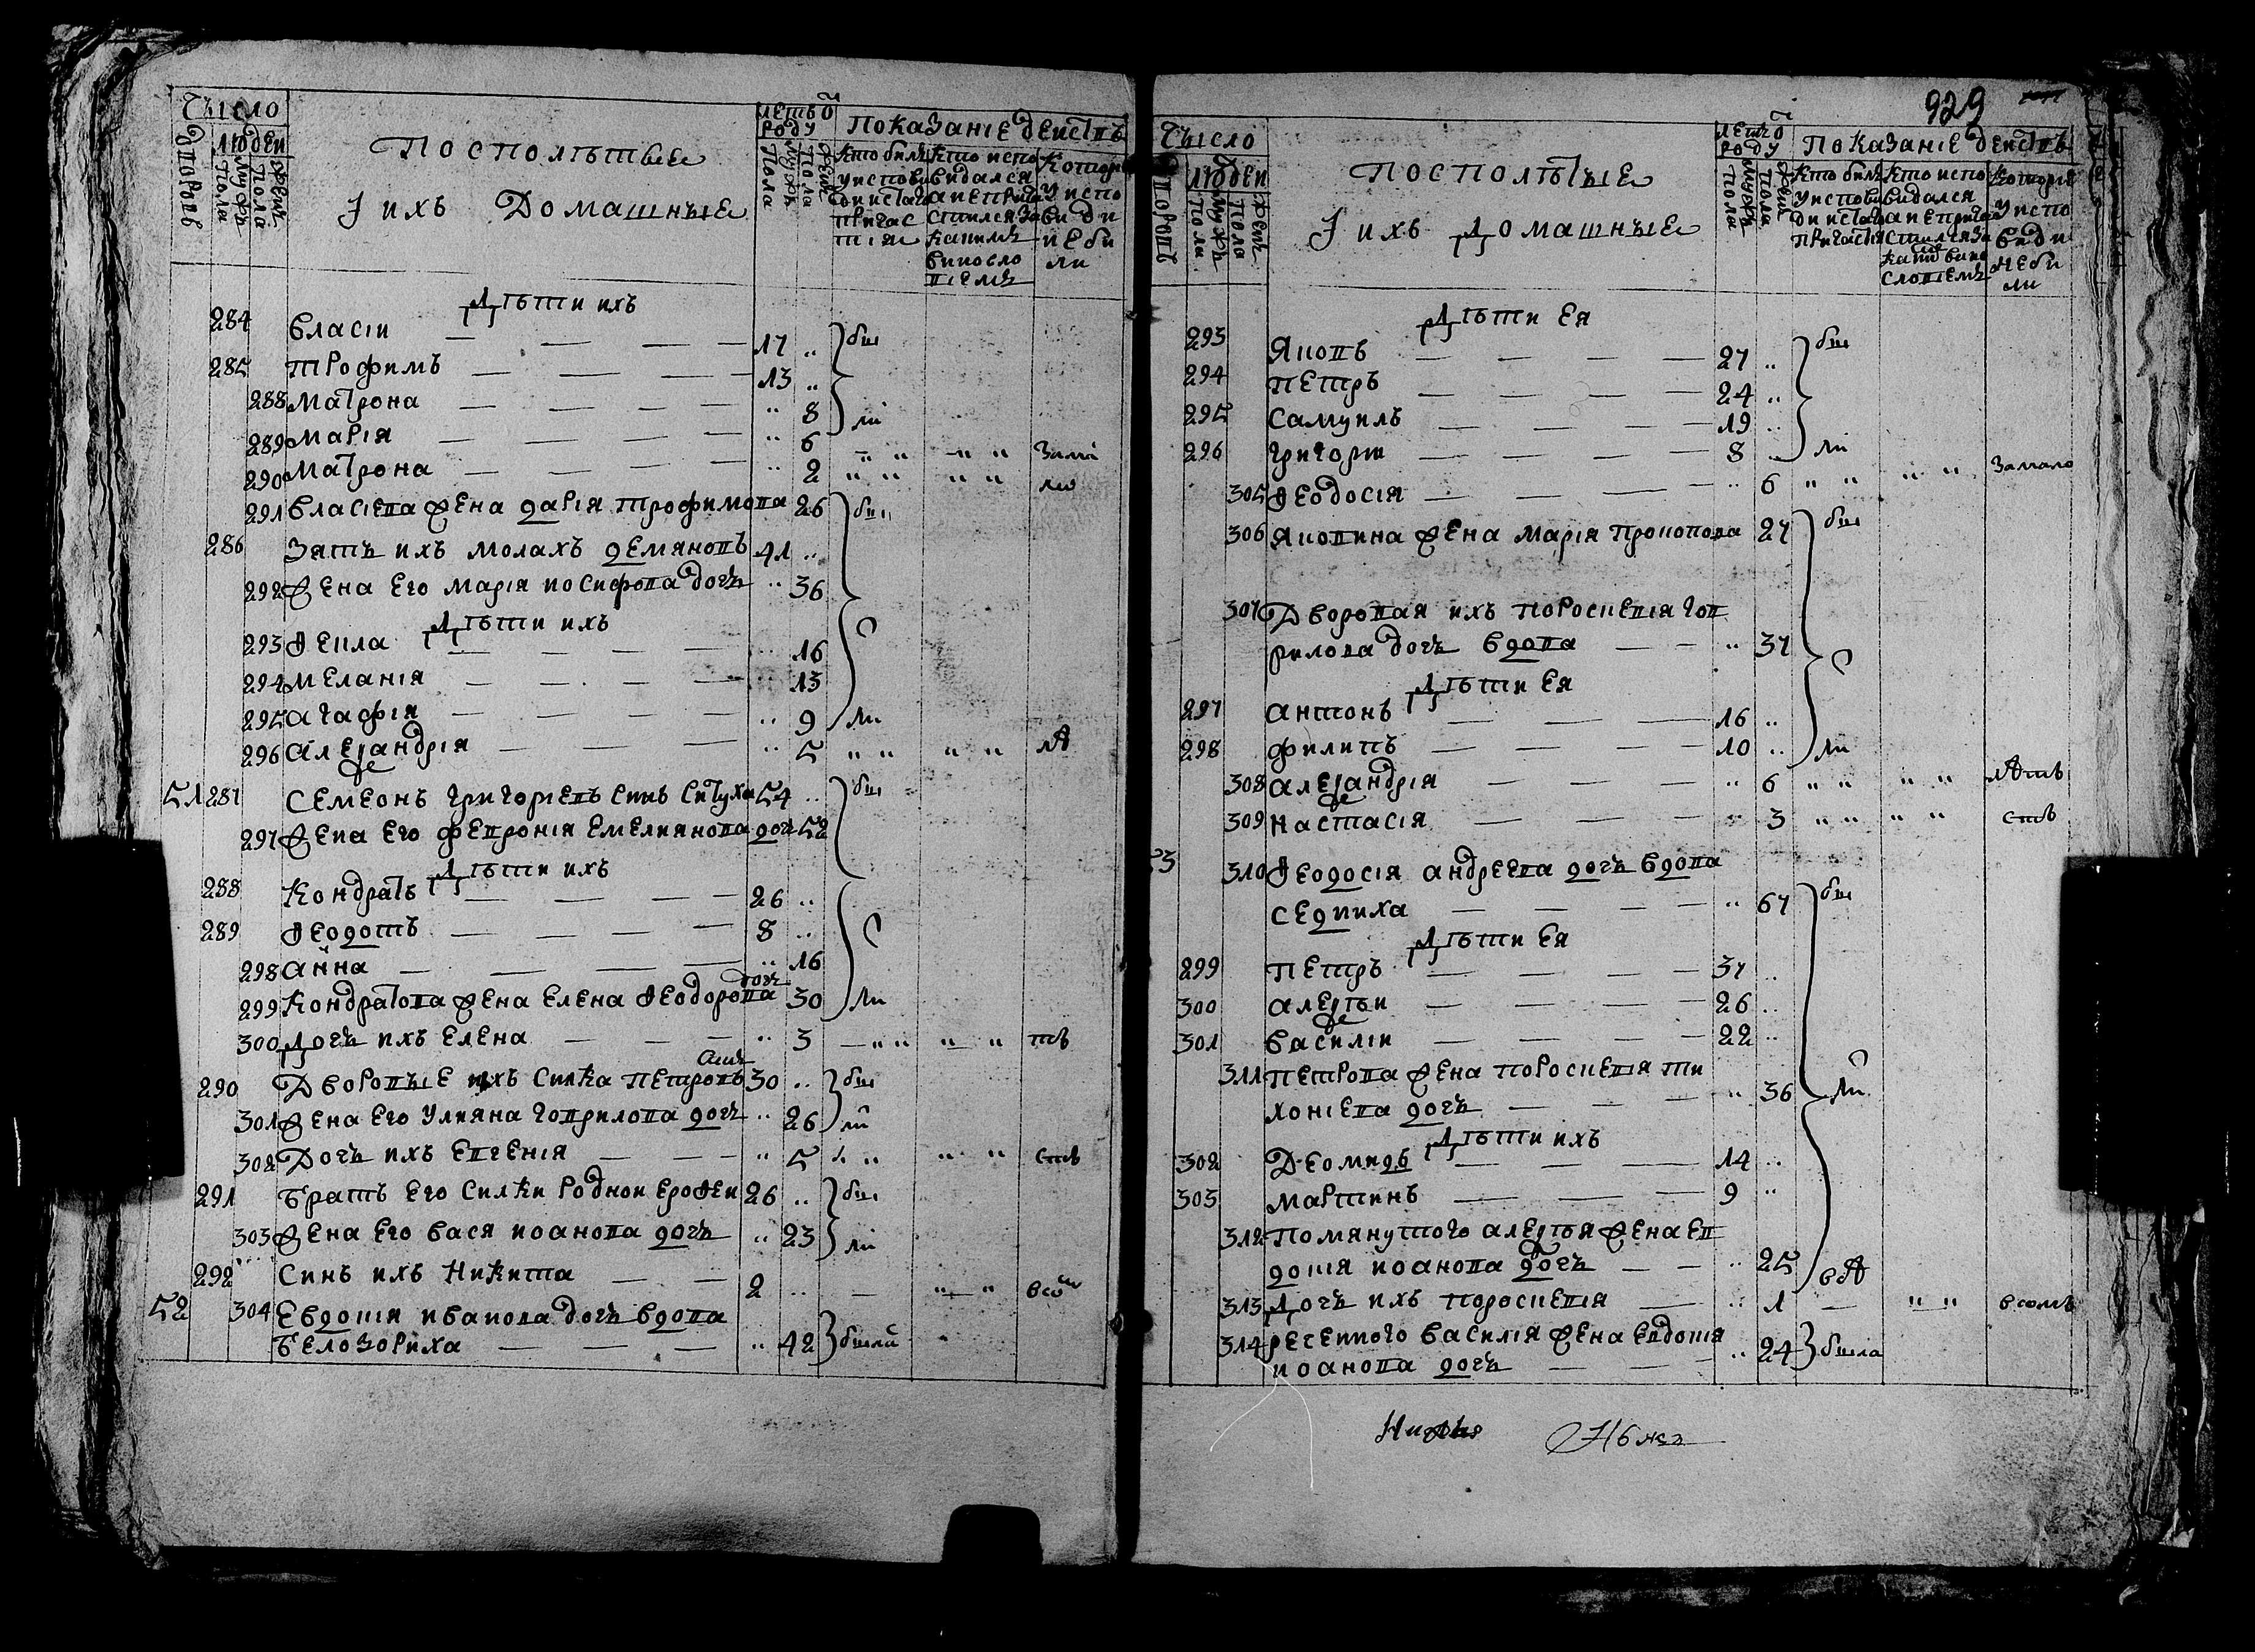 Число
Дворовъ
Людей
Мужъ Пола
Женъ Пола
Посполѣтые
І ихъ Домашные
Летъ отъ
роду
Мужъ Пола
Женъ Пола
Показаніе действъ
Кто билъ
у исповѣ
ди и стаго
причас
тия
Кто испо
видался
а неприча
стился за
какимъ
виносло
віемъ
Которіе
у испо
види
не би
ли
Дѣти ихъ
284 Власіи 17 .. би
285 Трофимъ 13 ..
288 Матрона .. 8 ли
289 Марія .. 6
290 Матрона .. 2 за ма ло
291 Власіева жена Дарія Трофимова 26 би
286 Зять ихъ Малахъ Демяновъ 41 ..
292 Жена его Марія Иосифова дочъ .. 36
Дѣти ихъ
293 Ѳекла .. 16
294 Меланія .. 13
295 Агафія .. 9 ли
296 Алеѯандрія .. 5 лѣ
51 287 Семеонъ Григоріевъ синъ Ситуха 54 .. би
297 Жена его Февронія Емелиянова дочъ 52
Дѣти ихъ
288 Кондратъ 26 ..
289 Ѳеодотъ 8 ..
298 Анна .. 16
299 Кондратова жена Елена Ѳеодорова дочъ 30 ли
300 Дочъ ихъ Елена .. 3 тв
290 Дворовые ихъ Силка Петровъ синъ 30 .. би
301 Жена его Улияна Гаврилова дочъ .. 26 ли
302 Дочъ ихъ Евгенія .. 5 ств
291 Братъ его Силки родной Ерофеи 26 .. би
303 Жена его Вася Иоанова дочъ .. 23 ли
292 Синъ ихъ Никита 2 ..
52 304 Евдокія Иванова дочъ вдова
Белозориха .. 42 била
929
Число
Дворовъ
Людей
Мужъ Пола
Женъ Пола
Посполѣтые
І ихъ Домашные
Летъ отъ
роду
Мужъ Пола
Женъ Пола
Показаніе действъ
Кто билъ
у исповѣ
ди и стаго
причастія
Кто испо
видался
а неприча
стился за
каким вино
словіемъ
Которіе
у испо
види
не би
ли
Дѣти ея
293 Яковъ 27 .. би
294 Петръ 24 ..
295 Самуилъ 19 ..
296 Григоріи 8 .. ли
305 Ѳеодосія .. 6 за мало
306 Яковина жена Марія Прокопова 27 би
307 Дворовая ихъ Пороскевія Гав
рилова дочъ вдова .. 37
Дѣти ея
297 Антонъ 16 ..
298 Филипъ 10 .. ли
308 Алеѯандрія .. 6 лѣтъ
309 Настасія .. 3 ств
53 310 Ѳеодосія Андреева дочъ вдова
Седниха .. 67 би
Дѣти ея
299 Петръ 37 ..
300 Алеѯѣи 26 ..
301 Василіи 22 ..
311 Петрова жена Пороскевія Ти
хоніева дочъ .. 36 ли
Дѣти ихъ
302 Деомидъ 14 ..
303 Мартинъ 9 ..
312 Помянутого Алеѯѣя жена Ев
докія Иоанова дочъ .. 25
313 Дочъ ихъ Пороскевія .. 1 всемъ
314 Реченного Василія жена Евдокія
Иоанова дочъ .. 24 била